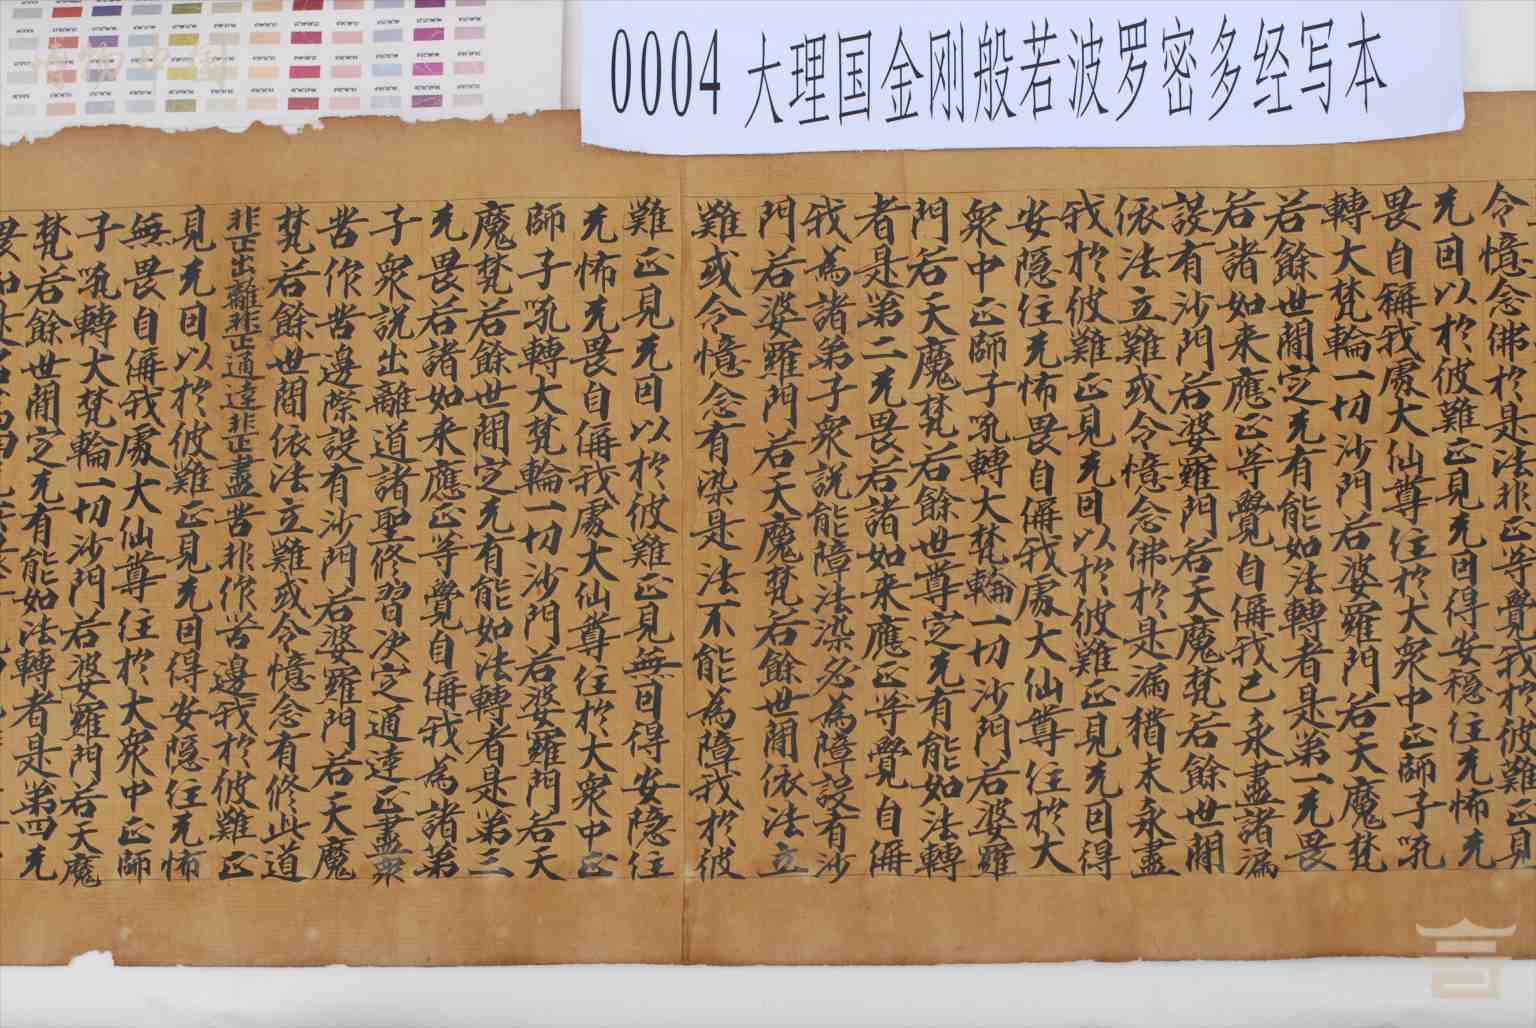 0004 大理国金刚般若波罗密多经写本
令憶念佛於是法非正等覺我於彼難正見
无因以於彼難正見无因得安穩住无怖无
畏自稱我處大仙尊住於大衆中正師子吼
轉大梵輪一切沙門若婆羅門若天魔梵
若餘世間定无有能如法轉者是第一无畏
若諸如来應正等覺自偁我已永盡諸漏
設有沙門若婆羅門若天魔梵若餘世間
依法立難或令憶念佛於是漏猶未永盡
我於彼難正見无因以於彼難正見无因得
安隱住无怖畏自偁我處大仙尊住於大
衆中正師子吼轉大梵輪一切沙門若婆羅
門若天魔梵若餘世尊定无有能如法轉
者是第二无畏若諸如来應正等覺自偁
我為諸弟子衆説能障法染必為障設有沙
門若婆羅門若天魔梵若餘世間依法立
難或令憶念有染是法不能為障我於彼
難正見无因以於彼難正見無因得安隱住
无怖无畏自偁我處大仙尊住於大衆中正
師子吼轉大梵輪一切沙門若婆羅門若天
魔梵若餘世間定无有能如法轉者是第三
无畏若諸如来應正等覺自偁我為諸弟
子衆説出離道諸聖修習决定通達正盡衆
苦作苦邊際設有沙門若婆羅門若天魔
梵若餘世間依法立難或令憶念有修此道
非正出離非正通達非正盡苦非作苦邊我於彼難正
見无因以於彼難正見无因得安隱住无怖
無畏自偁我處大仙尊住於大衆中正師
子吼轉大梵輪一切沙門若婆羅門若天魔
梵若餘世間定无有能如法轉者是第四无